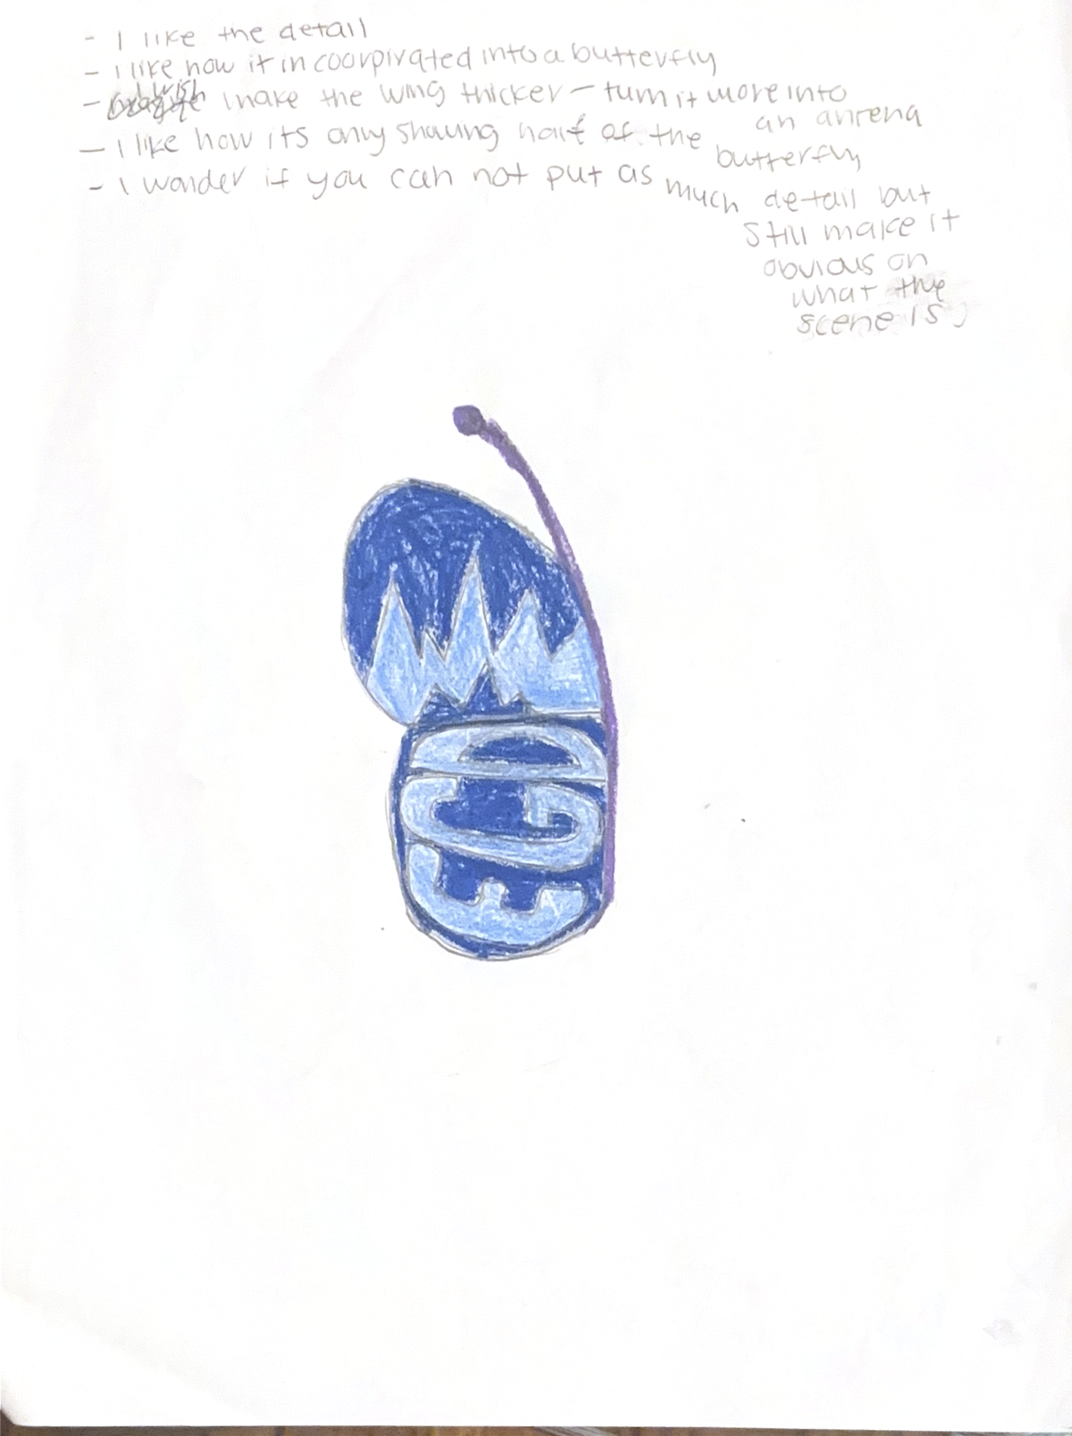 - I like the detail
- I like how it incoorpirated into a butterfly
- I wish make the wing thicker - turn it more into
an anrena
- I like how its only showing half of the
butterfly
- I wonder if you can not put as much detail but
still make it
obvious on
what the
scene is,
ECD